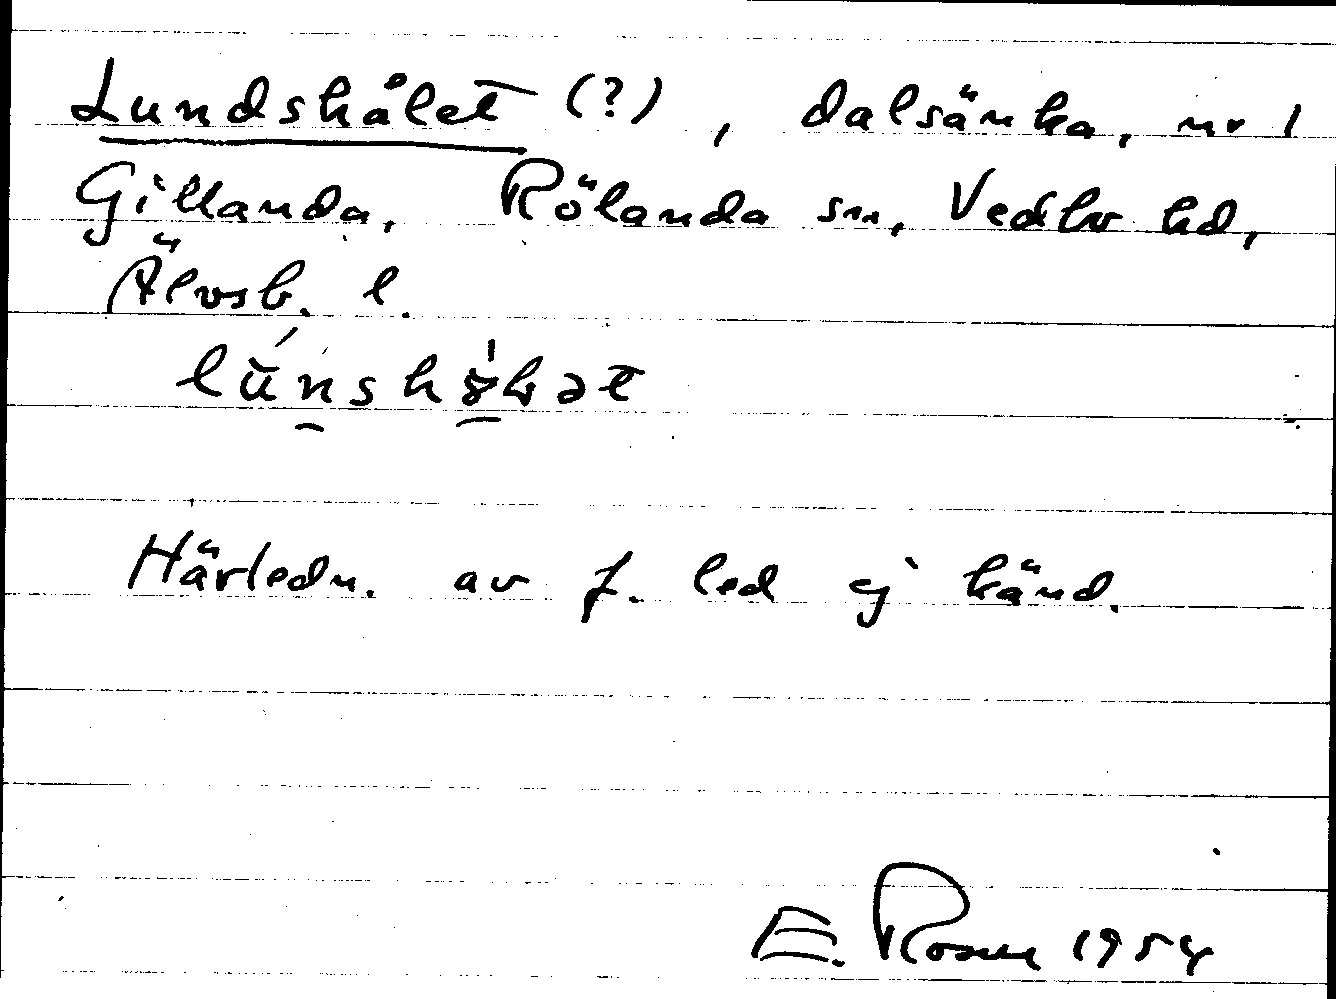 Lundshålet (?), dalsänka, nr 1
Gillanda, Rölanda sn, Vedbo hd,
Älvsb. l.
Härledn. av f. led ej känd.
E. Rosen 1954